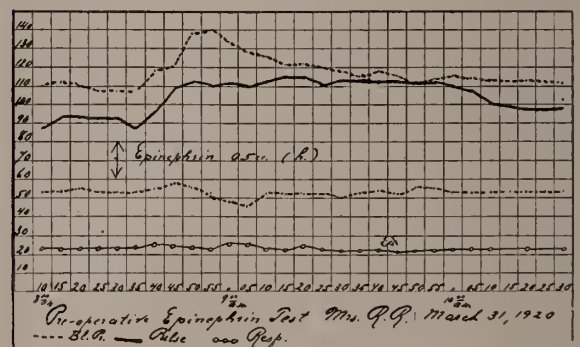 140
130
120
110
100
90
80
70
60
50
40
30
20
10
Epinephrin 0.5cc. (h.)
10 15 20 25 30 35 40 45 50 55 9 00 a.m. 05 10 15 20 25 30 35 40 45 50 55 10 00 a.m. 05 10 15 20 25 30
8 00 a.m.
Pre-operative Epinephrin Test Mrs. R.R. March 31, 1920
Bl.Pr. Pulse Resp.